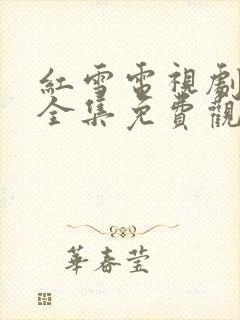 紅雪電視劇
全集免費觀
華春莹